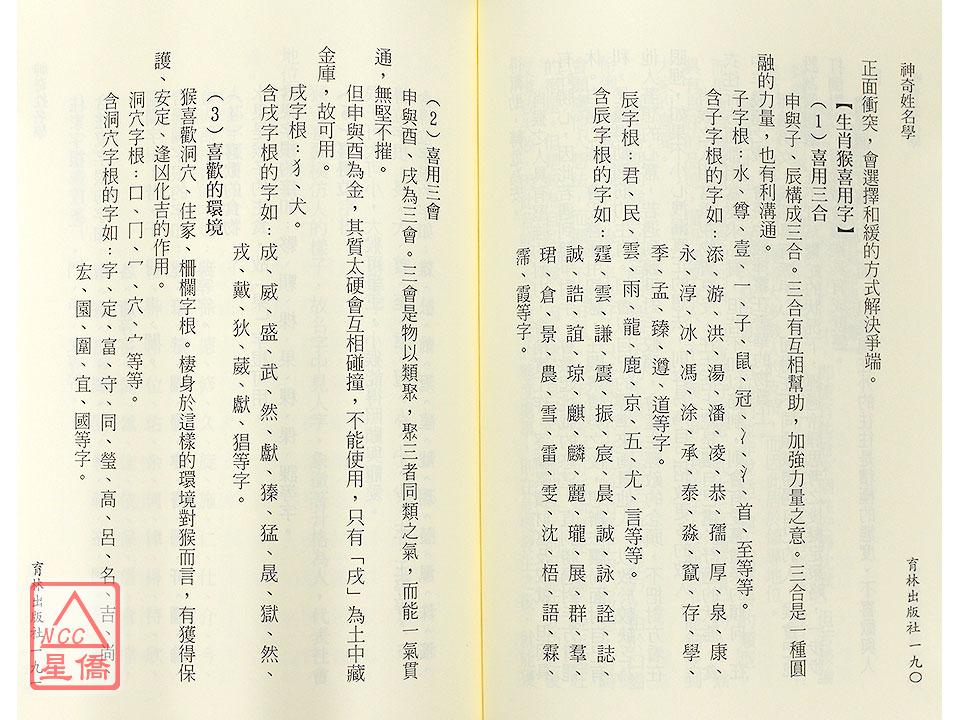 神奇姓名學
正面衝突，會選擇和緩的方式解決爭端。
【生肖猴喜用字】
（1）喜用三合
申與子、辰構成三合。三合有互相幫助，加強力量之意。三合是一種圓
融的力量，也有利溝通。
子字根：水、尊、壹、一、子、鼠、冠、冫、氵、首、至等等。
含子字根的字如：添、游、洪、湯、潘、凌、恭、孺、厚、泉、康、
永、淳、冰、馮、涂、承、泰、淼、竄、存、學、
季、孟、臻、遵、道等字。
辰字根：君、民、雲、雨、龍、鹿、京、五、尤、言等等。
含辰字根的字如：霆、雲、謙、震、振、宸、晨、誠、詠、詮、誌、
誠、誥、誼、琼、麒、麟、麗、瓏、展、群、羣、
珺、倉、景、農、雪、雷、雯、沈、梧、語、霖、
霈、霞等字。
育林出版社 一九〇
（2）喜用三會
申與酉、戌為三會。三會是物以類聚，聚三者同類之氣，而能一氣貫
通，無堅不摧。
但申與酉為金，其質太硬會互相碰撞，不能使用，只有「戌」為土中藏
金庫，故可用。
戌字根：犭、犬。
含戌字根的字如：成、威、盛、武、然、獻、獉、猛、晟、獄、然、
戎、戴、狄、葳、獻、猖等字。
（3）喜歡的環境
猴喜歡洞穴、住家、柵欄字根。棲身於這樣的環境對猴而言，有獲得保
護、安定、逢凶化吉的作用。
洞穴字根：口、冂、冖、穴、宀等等。
含洞穴字根的字如：字、定、富、守、同、瑩、高、呂、名、吉、尚、
宏、園、圍、宜、國等字。
育林出版社 一九
NCC
星僑